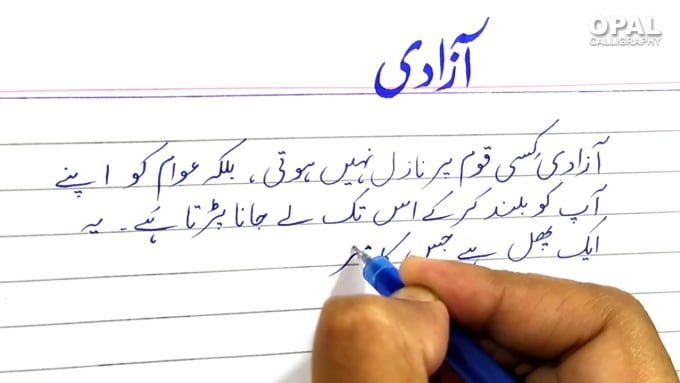 OPAL
CALLIGRAPHY
آزادی
آزادی کسی قوم پر نازل نہیں ہوتی، بلکہ عوام کو اپنے
آپ کو بلند کر کے اس تک لے جانا پڑتا ہے۔ یہ
ایک پھل ہے جس